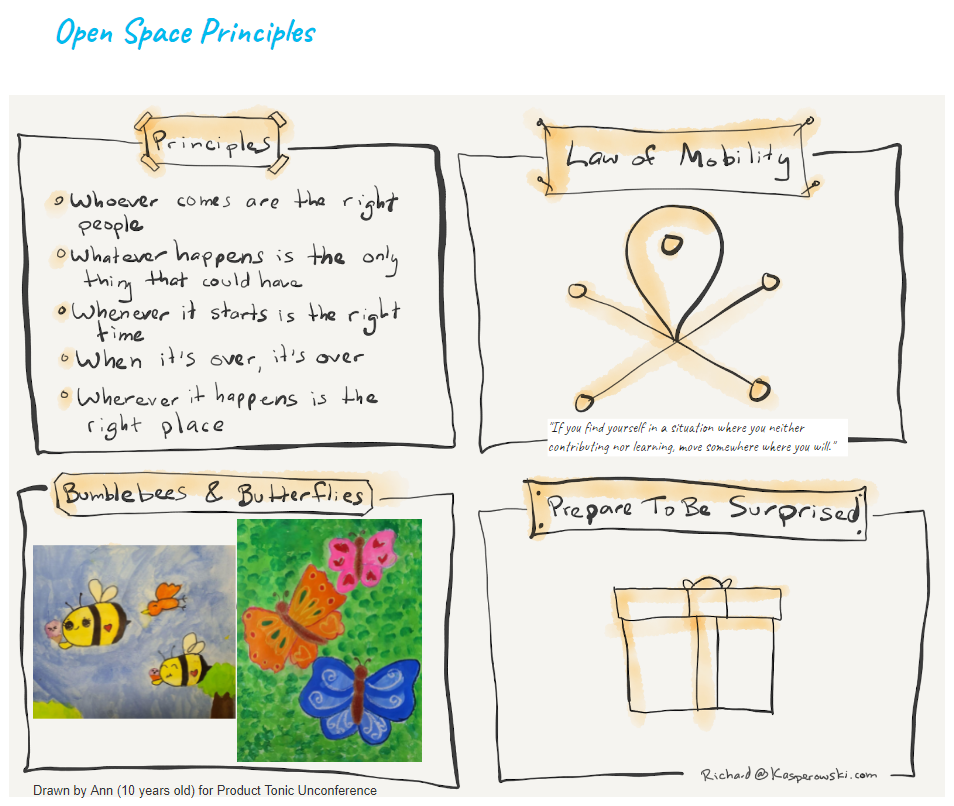 Open Space Principles
Principles
Whoever comes are the right
people
Whatever happens is the only
thing that could have
Whenever it starts is the right
time
When it's over, it's over
Wherever it happens is the
right place
Law of Mobility
"If you find yourself in a situation where you neither
contributing nor learning, move somewhere where you will."
Bumblebees & Butterflies
Prepare To Be Surprised
Richard@Kasperowski.com
Drawn by Ann (10 years old) for Product Tonic Unconference